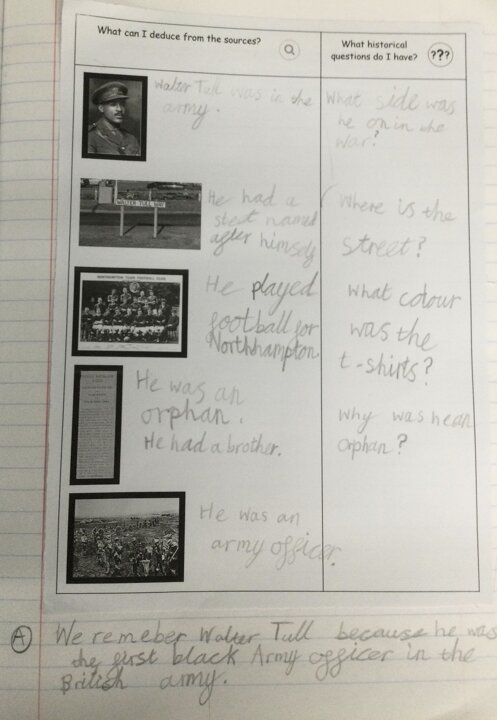 What can I deduce from the sources?
What historical
questions do I have?
???
Walter Tull was in the
army.
What side was
he on in the
war?
WALTER TULL WAY
He had a
steet named
after himself
Where is the
street?
NORTHAMPTON TOWN FOOTBALL CLUB
He played
football for
Northhampton
what colour
was the
t-shirts?
He was an
orphan.
He had a brother.
why was he an
orphan?
He was an
army officer.
A
We remeber Walter Tull because he was
the first black Army officer in the
British army.